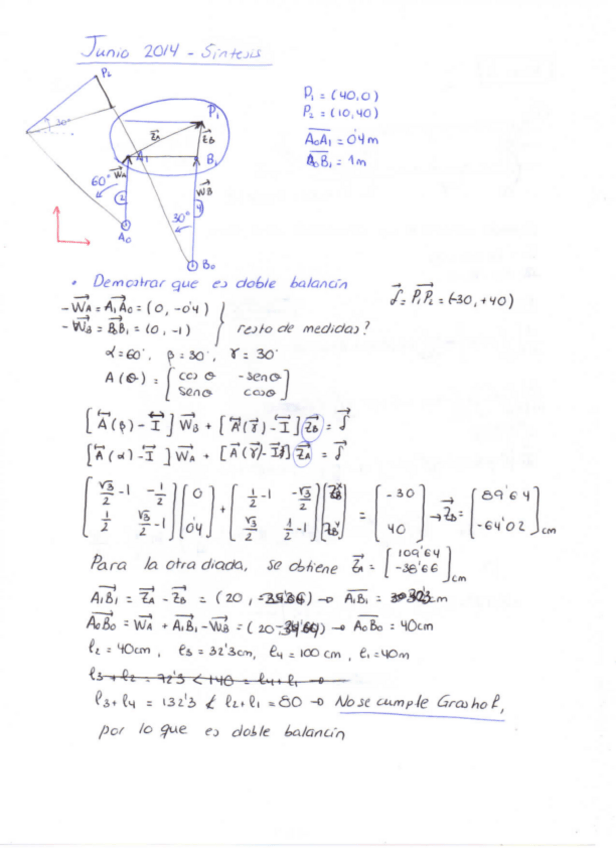 Junio 2014 - Síntesis
P₂
30°
P₁
Z⃗A
Z⃗B
A₁
B₁
W⃗A
60°
W⃗B
2
4
30°
A₀
B₀
P₁ = (40,0)
P₂ = (10,40)
A₀A₁ = 0'4m
A₀B₁ = 1m
• Demostrar que es doble balancín
δ⃗ = P₁P₂ = (-30, +40)
-W⃗A = A₁A₀ = (0, -0'4)
-W⃗B = B₀B₁ = (0, -1)
resto de medidas?
α=60°, β=30°, γ=30°
A(θ) = [cos θ -senθ
senθ cosθ]
[A(β) - I] W⃗B + [A(γ) - I] Z⃗B = δ⃗
[A(α) - I] W⃗A + [A(γ) - I] Z⃗A = δ⃗
[√3/2 -1 -1/2
1/2 √3/2 -1] [0
0'4] + [1/2 -1 -√3/2
√3/2 1/2 -1] [ZBx
ZBy] = [-30
40] → Z⃗B = [89'64
-64'02] cm
Para la otra diada, se obtiene Z⃗A = [109'64
-38'66] cm
A₁B₁ = Z⃗A - Z⃗B = (20, → A₁B₁ = cm
A₀B₀ = W⃗A + A₁B₁ - W⃗B = (20 → A₀B₀ = 40cm
l₂ = 40cm, l₃ = 32'3cm, l₄ = 100 cm, l₁ = 40m
l₃ + l₂ = 72'3 < 140 = l₄ + l₁ →
l₃ + l₄ = 132'3 ≮ l₂ + l₁ = 80 → No se cumple Grashof,
por lo que es doble balancín